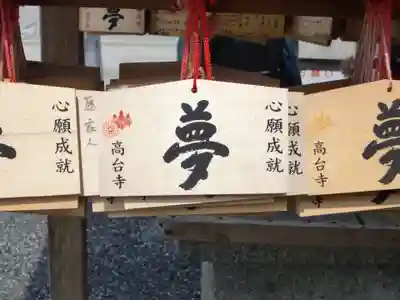 夢
心願成就
夢
心願成就
高台寺
心願成就
夢
高台寺